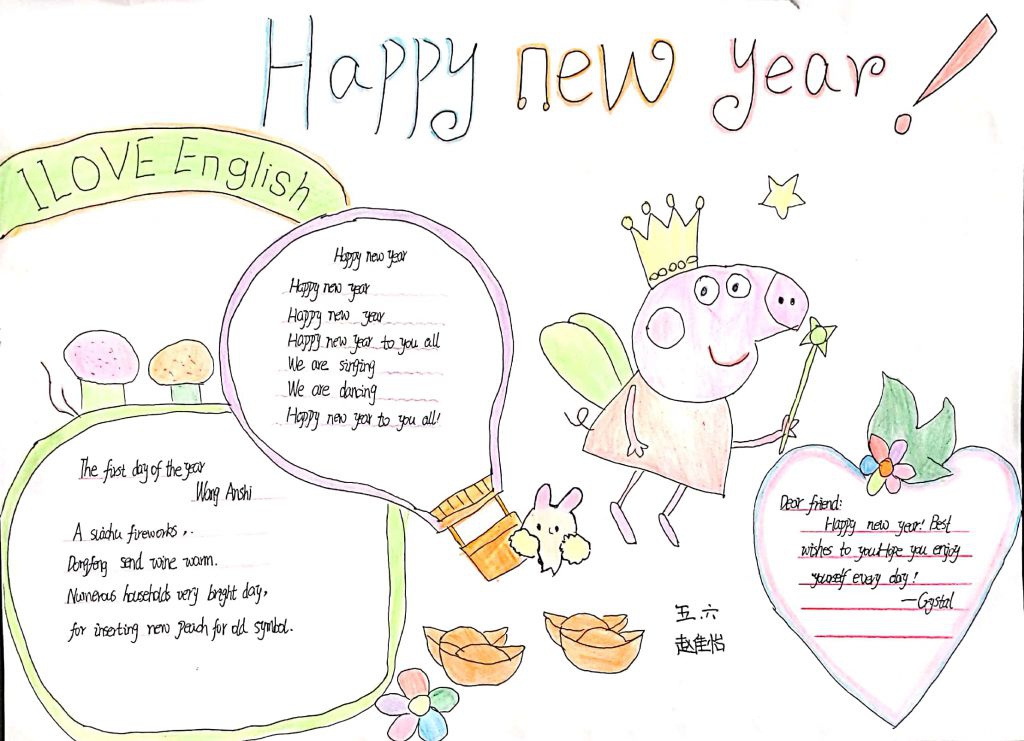 Happy new year!
I LOVE English
Happy new year
Happy new year
Happy new year
Happy new year to you all
We are singing
We are dancing
Happy new year to you all!
The first day of the year
Wang Anshi
A suichu fireworks,.
Dongfeng send wine warm.
Numerous households very bright day,
for inserting new peach for old symbol.
Dear friend:
Happy new year! Best
wishes to you!Hope you enjoy
yourself every day!
—Crystal
五.六
赵佳怡